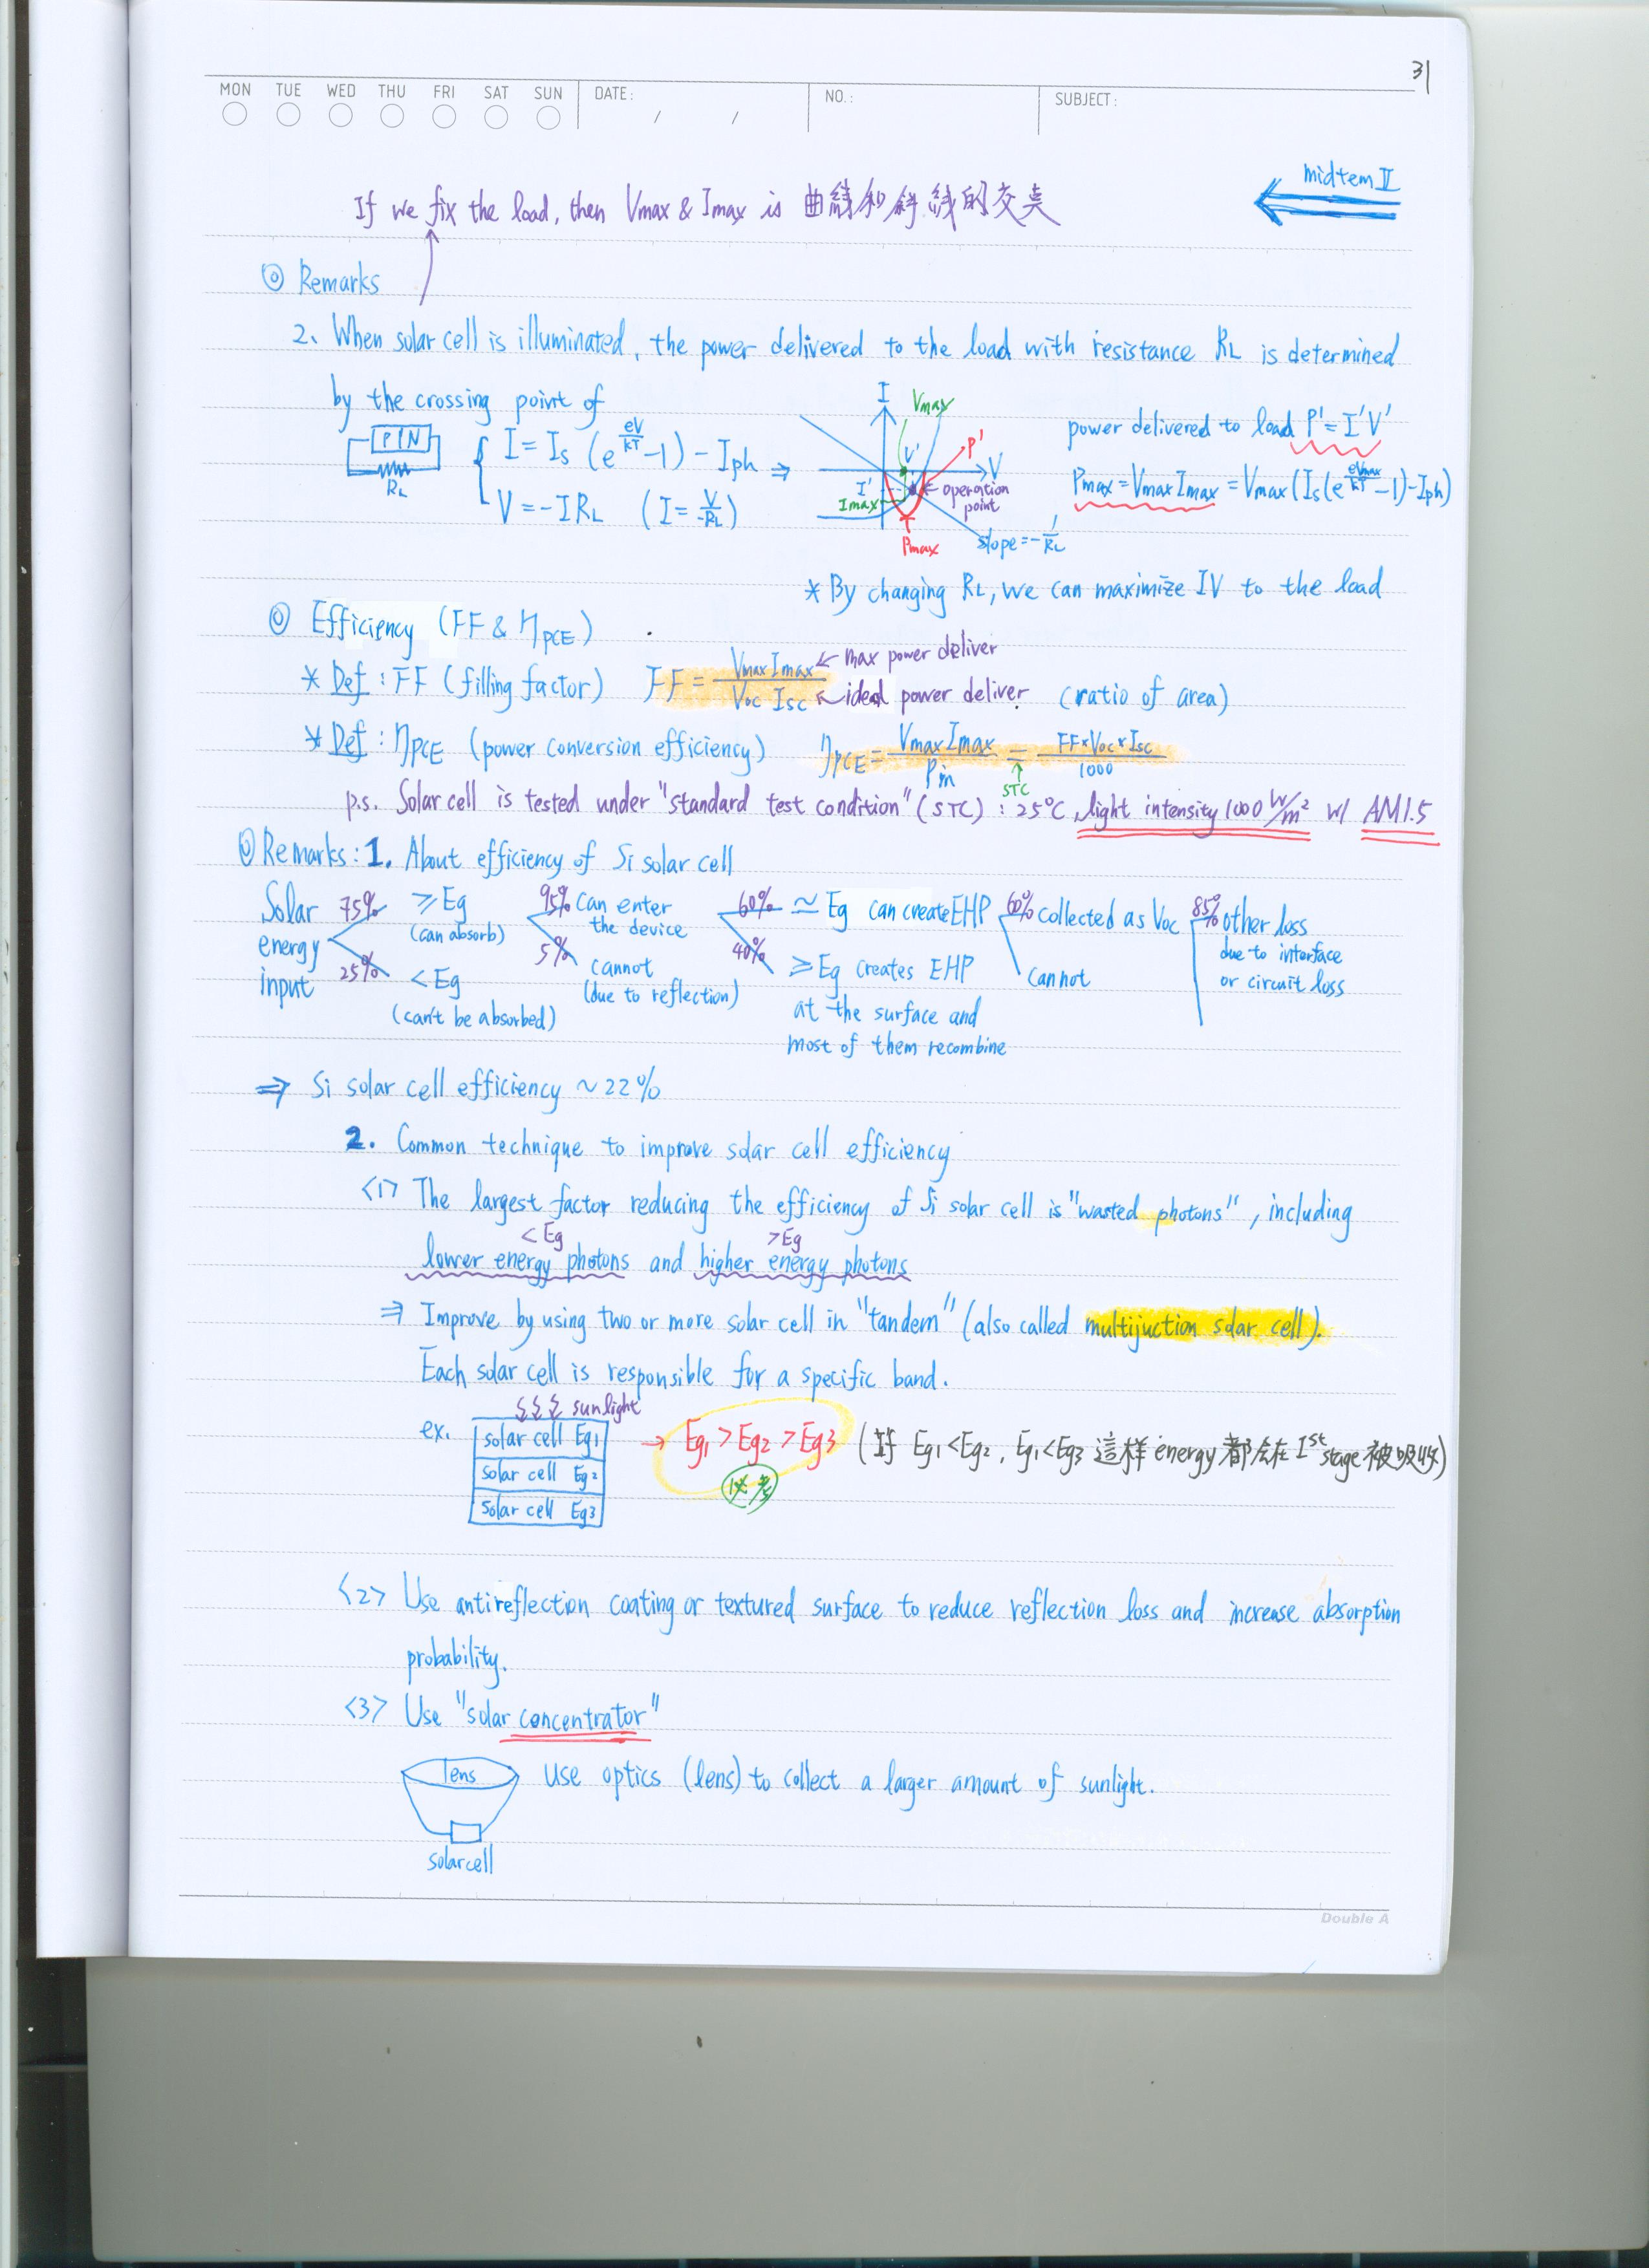 31
MON TUE WED THU FRI SAT SUN DATE: / / NO.: SUBJECT:
midtem II
If we fix the load, then Vmax & Imax is 曲線和斜線的交點
◎ Remarks
2、When solar cell is illuminated, the power delivered to the load with resistance RL is determined
by the crossing point of
PIN
RL
I = Is (e^(eV/kT) -1) - Iph ⇒
V = -IRL (I = V/-RL)
I
Vmax
P'
V'
V
I'
Imax
operation point
Pmax
slope = -1/RL
power delivered to load P' = I'V'
Pmax = Vmax Imax = Vmax (Is(e^(eVmax/kT) -1) - Iph)
* By changing RL, we can maximize IV to the load
◎ Efficiency (FF & ηPCE)
* Def : FF (filling factor) FF = Vmax Imax / Voc Isc ← max power deliver ← ideal power deliver (ratio of area)
* Def : ηPCE (power conversion efficiency) ηPCE = Vmax Imax / Pin = FF×Voc×Isc / 1000
↑ STC
p.s. Solar cell is tested under "standard test condition" (STC) : 25°C, light intensity 1000 W/m² w/ AM1.5
◎ Remarks : 1. About efficiency of Si solar cell
Solar energy input
75% ≥Eg (can absorb)
25% <Eg (can't be absorbed)
95% can enter the device
5% cannot (due to reflection)
60% ≃ Eg can create EHP
40% ≥Eg creates EHP at the surface and most of them recombine
60% collected as Voc
cannot
85% other loss due to interface or circuit loss
⇒ Si solar cell efficiency ~22%
2. Common technique to improve solar cell efficiency
<1> The largest factor reducing the efficiency of Si solar cell is "wasted photons", including
<Eg >Eg
lower energy photons and higher energy photons
⇒ Improve by using two or more solar cell in "tandem" (also called multijuction solar cell).
Each solar cell is responsible for a specific band.
sunlight
ex. solar cell Eg1
solar cell Eg2
solar cell Eg3
→ Eg1 > Eg2 > Eg3 (若 Eg1<Eg2, Eg1<Eg3 這樣 energy 都会在 1st stage 被吸收)
必考
<2> Use antireflection coating or textured surface to reduce reflection loss and increase absorption
probability.
<3> Use "solar concentrator"
lens
solar cell
use optics (lens) to collect a larger amount of sunlight.
Double A